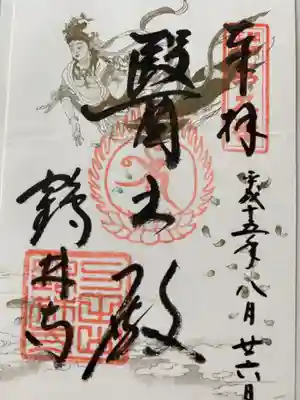 奉拝
平成十五年八月廿六日
醫王殿
鶴林寺